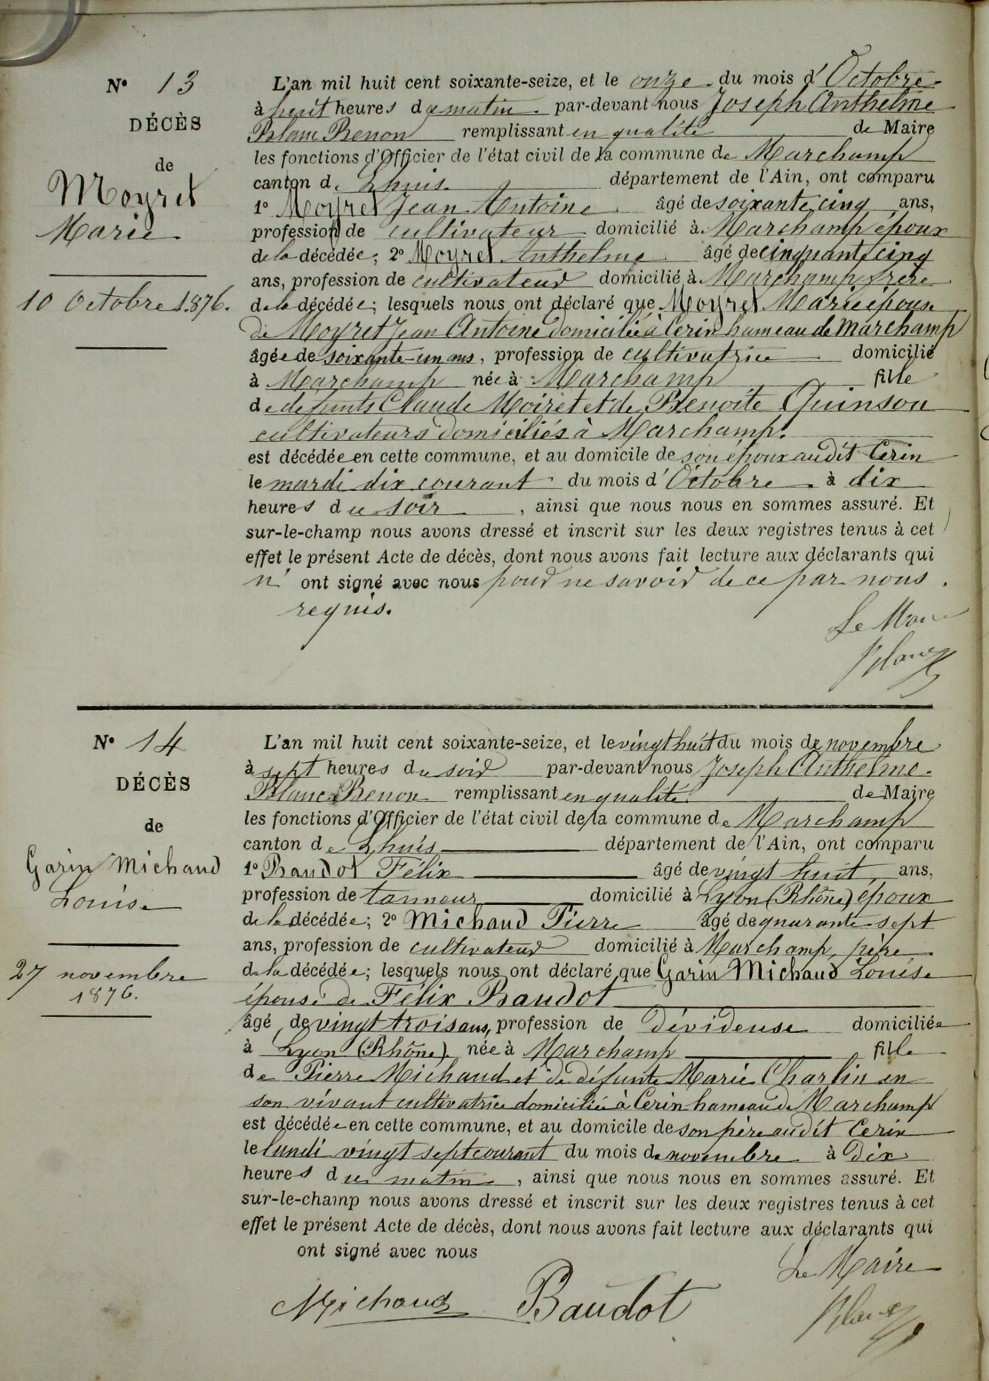 N° 13
DÉCÈS
de
Moyret
Marie
10 Octobre 1876.
L'an mil huit cent soixante-seize, et le onze du mois d'Octobre
à huit heures du matin par-devant nous Joseph Anthelme
Blanc Benon remplissant en qualité de Maire
les fonctions d'Officier de l'état civil de la commune de Marchamp
canton de Lhuis département de l'Ain, ont comparu
1° Moyret Jean Antoine âgé de soixante cinq ans,
profession de cultivateur domicilié à Marchamp époux
de la décédée; 2° Moyret Anthelme âgé de cinquante cinq
ans, profession de cultivateur domicilié à Marchamp frère
de la décédée; lesquels nous ont déclaré que Moyret Marie épouse
de Moyret Jean Antoine domiciliée à Cerin hameau de Marchamp
âgée de soixante-un ans, profession de cultivatrice domicilié
à Marchamp née à Marchamp fille
de défunts Claude Moiret et de Benoite Quinson
cultivateurs domiciliés à Marchamp.
est décédée en cette commune, et au domicile de son époux audit Cerin
le mardi dix courant du mois d'Octobre à dix
heures du soir, ainsi que nous nous en sommes assuré. Et
sur-le-champ nous avons dressé et inscrit sur les deux registres tenus à cet
effet le présent Acte de décès, dont nous avons fait lecture aux déclarants qui
n' ont signé avec nous pour ne savoir de ce par nous
requis.
Le Maire
Blanc
N° 14
DÉCÈS
de
Garin Michaud
Louise
27 novembre
1876.
L'an mil huit cent soixante-seize, et le vingt huit du mois de novembre
à sept heures du soir par-devant nous Joseph Anthelme
Blanc Benon remplissant en qualité de Maire
les fonctions d'Officier de l'état civil de la commune de Marchamp
canton de Lhuis département de l'Ain, ont comparu
1° Baudot Félix âgé de vingt huit ans,
profession de tanneur domicilié à Lyon (Rhône) époux
de la décédée; 2° Michaud Pierre âgé de quarante sept
ans, profession de cultivateur domicilié à Marchamp, père
de la décédée; lesquels nous ont déclaré que Garin Michaud Louise
épouse de Félix Baudot
âgé de vingt trois ans, profession de dévideuse domiciliée
à Lyon (Rhône) née à Marchamp fille
de Pierre Michaud et de défunte Marie Charlin en
son vivant cultivatrice domiciliée à Cerin hameau de Marchamp
est décédée en cette commune, et au domicile de son père audit Cerin
le lundi vingt sept courant du mois de novembre à dix
heures du matin, ainsi que nous nous en sommes assuré. Et
sur-le-champ nous avons dressé et inscrit sur les deux registres tenus à cet
effet le présent Acte de décès, dont nous avons fait lecture aux déclarants qui
ont signé avec nous
Le Maire
Michaud Baudot Blanc